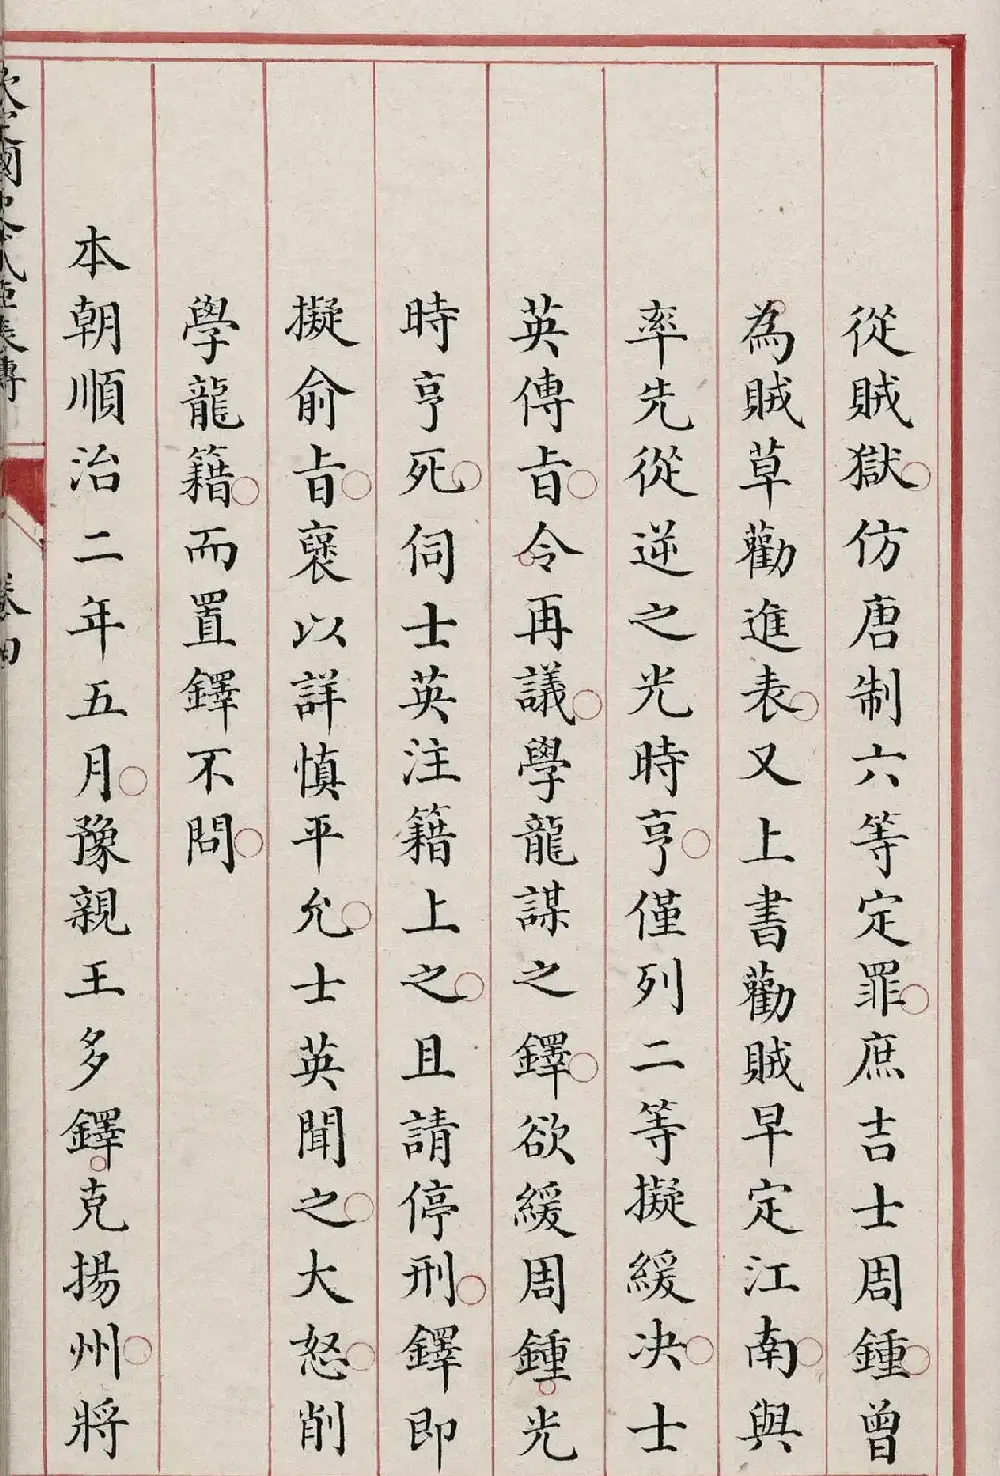 從賊獄仿唐制六等定罪庶吉士周鍾曾
為賊草勸進表又上書勸賊早定江南與
率先從逆之光時亨僅列二等擬緩决士
英傳㫖令再議學龍謀之鐸欲緩周鍾光
時亨死伺士英注籍上之且請停刑鐸即
擬俞㫖褒以詳慎平允士英聞之大怒削
學龍籍而置鐸不問
本朝順治二年五月豫親王多鐸克揚州將
國史貳臣表傳